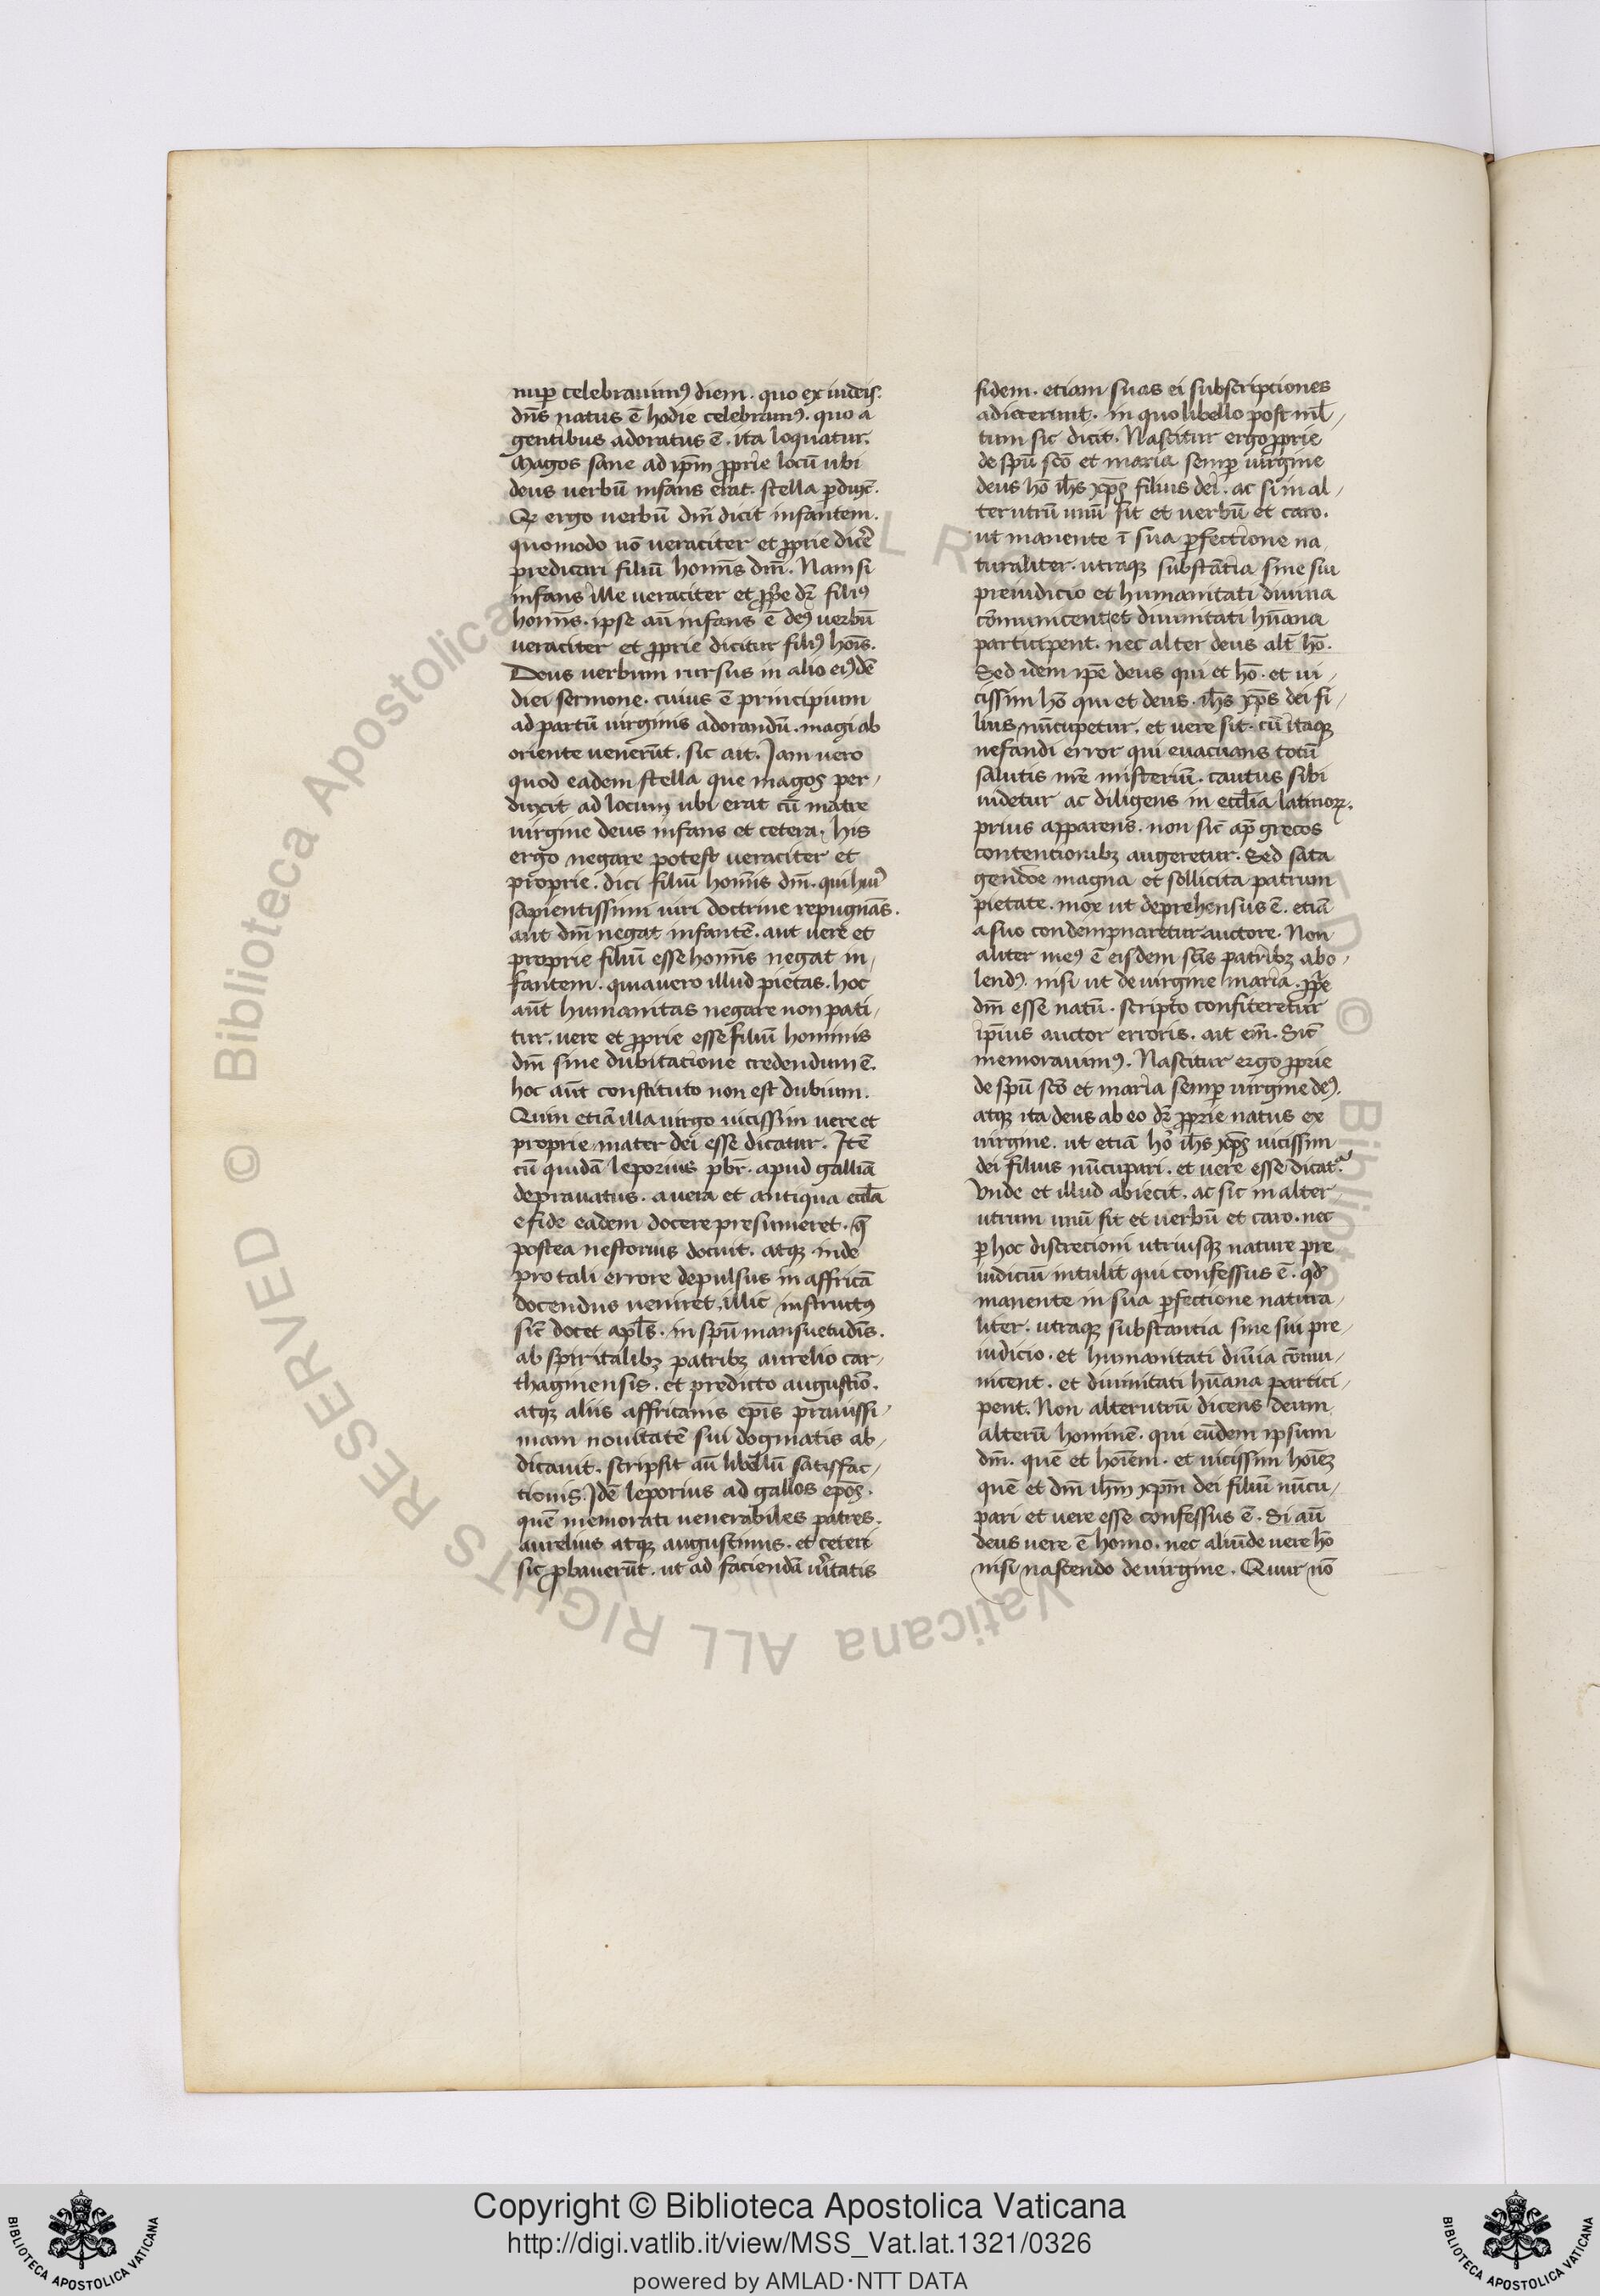 nuꝑ celebrauimꝰ diem. quo ex iudeis.
dn̄s natus ē hodie celebramꝰ. quo a
gentibus adoratus ē. ita loquatur.
Magos sane ad ip̄m ꝓprie locū ubi
deus uerbū infans erat. stella ꝑduxt̄.
Qr̄ ergo uerbū dm̄ dicit infantem.
quomodo nō ueraciter et ꝓprie dicẽ
predicari filiū homīs dm̄. Nam si
infans ille ueraciter et ꝓpͥe dr̄ filiꝰ
homīs. ipse aū infans ē deꝰ uerbū
ueraciter et ꝓprie dicitur filiꝰ hoīs.
Deus uerbum rursus in alio eiꝰdē
diei sermone. cuius ē principium
ad partū uirginis adorandū. magi ab
oriente uenerūt. sic ait. Jam uero
quod eadem stella que magos per⸝
duxit ad locum ubi erat cū matre
uirgine deus infans et cetera. his
ergo negare potest ueraciter et
proprie. dici filiū homīs dm̄. qui huiꝰ
sapientissimi uiri doctrine repugnās.
aut dm̄ negat infantē. aut uere et
proprie filiū esse homīs negat in⸝
fantem. quia uero illud pietas. hoc
aūt humanitas negare non pati⸝
tur. uere et ꝓprie esse filiū hominis
dm̄ sine dubitatione credendum ē.
hoc aūt constituto non est dubium.
Quin etiā illa uirgo uicissim uere et
proprie mater dei esse dicatur. Jtē
cū quidā leporius pbr̄. apud galliā
deprauatus. a uera et antiqua eccl̄a
e fide eadem docere presumeret. q̄
postea nestorius docuit. atqꝫ inde
pro tali errore depulsus in affricā
docendus ueniret. illic instructꝰ
sic̄ docet apl̄s. in spū mansuetudīs.
ab spiritalibꝫ patribꝫ aurelio car⸝
thaginensis. et predicto augustīo.
atqꝫ aliis affricanis ep̄is prauissi⸝
mam nouitatē sui dogmatis ab⸝
dicauit. scripsit aū libellū satisfac⸝
tionis. Jdē leporius ad gallos ep̄os.
quē memorati uenerabiles patres.
aurelius atqꝫ augustinus. et ceteri
sic ꝓbauerūt. ut ad faciendā uͥtatis
fidem. etiam suas ei subscriptiones
adicerent. in quo libello post ml̄⸝
tum sic dicit. Nascitur ergo ꝓprie
de spū scō et maria semꝑ uirgine
deus hō ih̄s xp̄s filius dei. ac si in al⸝
terutrū unū fit et uerbū et caro.
ut manente ī sua ꝑfectione na
turaliter. utraqꝫ substātia sine sui
preiudicio et humanitati diuina
cōmunicent et diuinitati hūana
participent. nec alter deus alt̄ hō.
Sed idem ip̄e deus qui et hō. et ui⸝
cissim hō qui et deus. ih̄s xp̄s dei fi⸝
lius nūcupetur. et uere sit. cū itaqꝫ
nefandi error qui euacuans totū
salutis nr̄e misteriū. cautus sibi
uidetur ac diligens in eccl̄ia latinoꝝ.
prius apparens. non sic ap̄ grecos
contentionibꝫ augeretur. Sed sata
gendoe magna et sollicita patrum
pietate. mox ut deprehensus ē. etiā
a suo condempnaretur auctore. Non
aliter uiꝰ ē eisdem scīs patribꝫ abo⸝
lendꝰ. nisi ut de uirgine maria. ꝓpͥe
dm̄ esse natū. scripto confiteretur
ip̄ius auctor erroris. ait em̄. Sic̄
memorauimꝰ. Nascitur ergo ꝓprie
de spū scō et maria semꝑ uirgine deꝰ.
atqꝫ ita deus ab eo dr̄ ꝓprie natus ex
uirgine. ut etiā hō ih̄s xp̄s uicissim
dei filius nūcupari. et uere esse dicat᷑.
Vnde et illud abiecit. ac sic in alter
utrum unū fit et uerbū et caro. nec
ꝑ hoc discretioni utriusqꝫ nature pre
iudiciū intulit qui confessus ē. qd̄
manente in sua ꝑfectione natura⸝
liter. utraqꝫ substantia sine sui pre⸝
iudicio. et humanitati diuīa cōmu⸝
nicent. et diuinitati hūana partici⸝
pent. Non alterutrū dicens deum
alterū hominē. qui eūdem ipsum
dm̄. quē et hoīem. et uicissim hoīeꝫ
quē et dm̄ ih̄m xp̄m dei filiū nūcu⸝
pari et uere esse confessus ē. Si aū
deus uere ē homo. nec aliūde uere hō
nisi nascendo de uirgine. Quur nō
Copyright © Biblioteca Apostolica Vaticana
http://digi.vatlib.it/view/MSS_Vat.lat.1321/0326
powered by AMLAD·NTT DATA
BIBLIOTECA APOSTOLICA VATICANA
BIBLIOTECA APOSTOLICA VATICANA
© Biblioteca Apostolica Vaticana ALL RIGHTS RESERVED